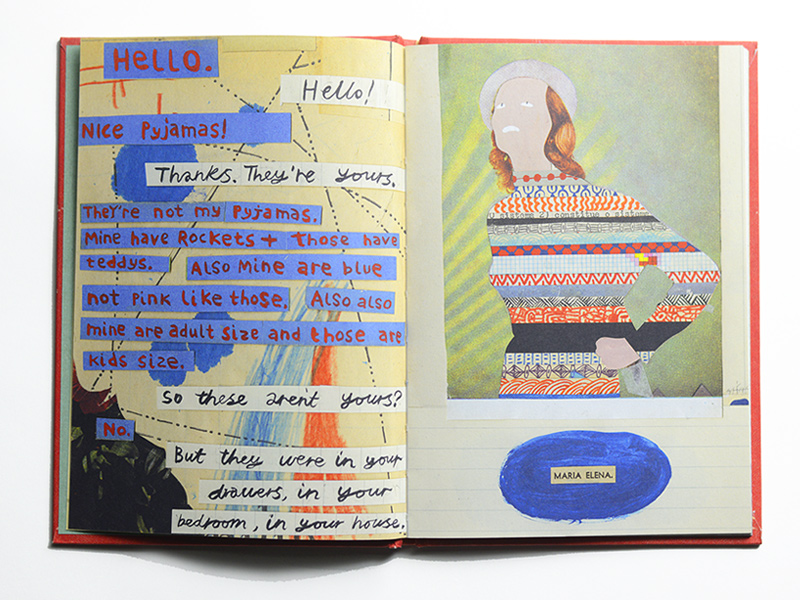 Hello.
Hello!
Nice Pyjamas!
Thanks. They're yours.
They're not my Pyjamas.
Mine have Rockets + those have
teddys. Also Mine are blue
not Pink like those. Also also
mine are adult size and those are
kids size.
So these arent yours?
No.
But they were in your
drawers, in your
bedroom, in your house.
MARIA ELENA.